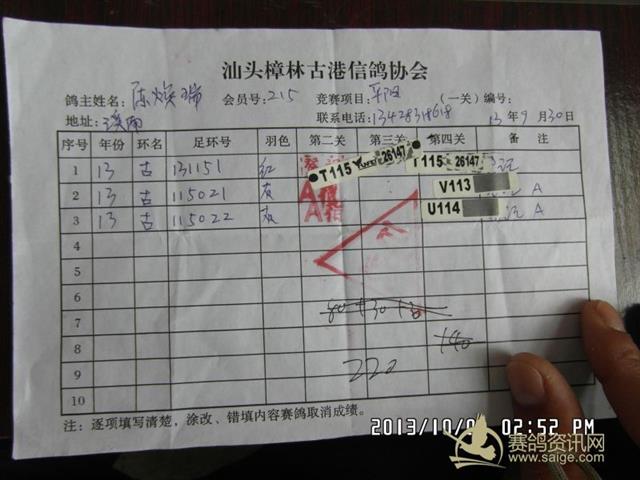 汕头樟林古港信鸽协会
鸽主姓名: 陈焕瑞 会员号: 215 竞赛项目: （一关）编号:
地址: 溪南 联系电话: 13428318618 13年9月30日
序号 年份 环名 足环号 羽色 第二关 第三关 第四关 备注
1 13 古 131151 红
2 13 古 115021 灰 A
3 13 古 115022 灰 A
4
5
6
7
8 140
9 222
10
T115 26147
T115 26147
V113
U114
注：逐项填写清楚，涂改、错填内容赛鸽取消成绩。
2013/10/0 02:52 PM
赛鸽资讯网
www.saige.com